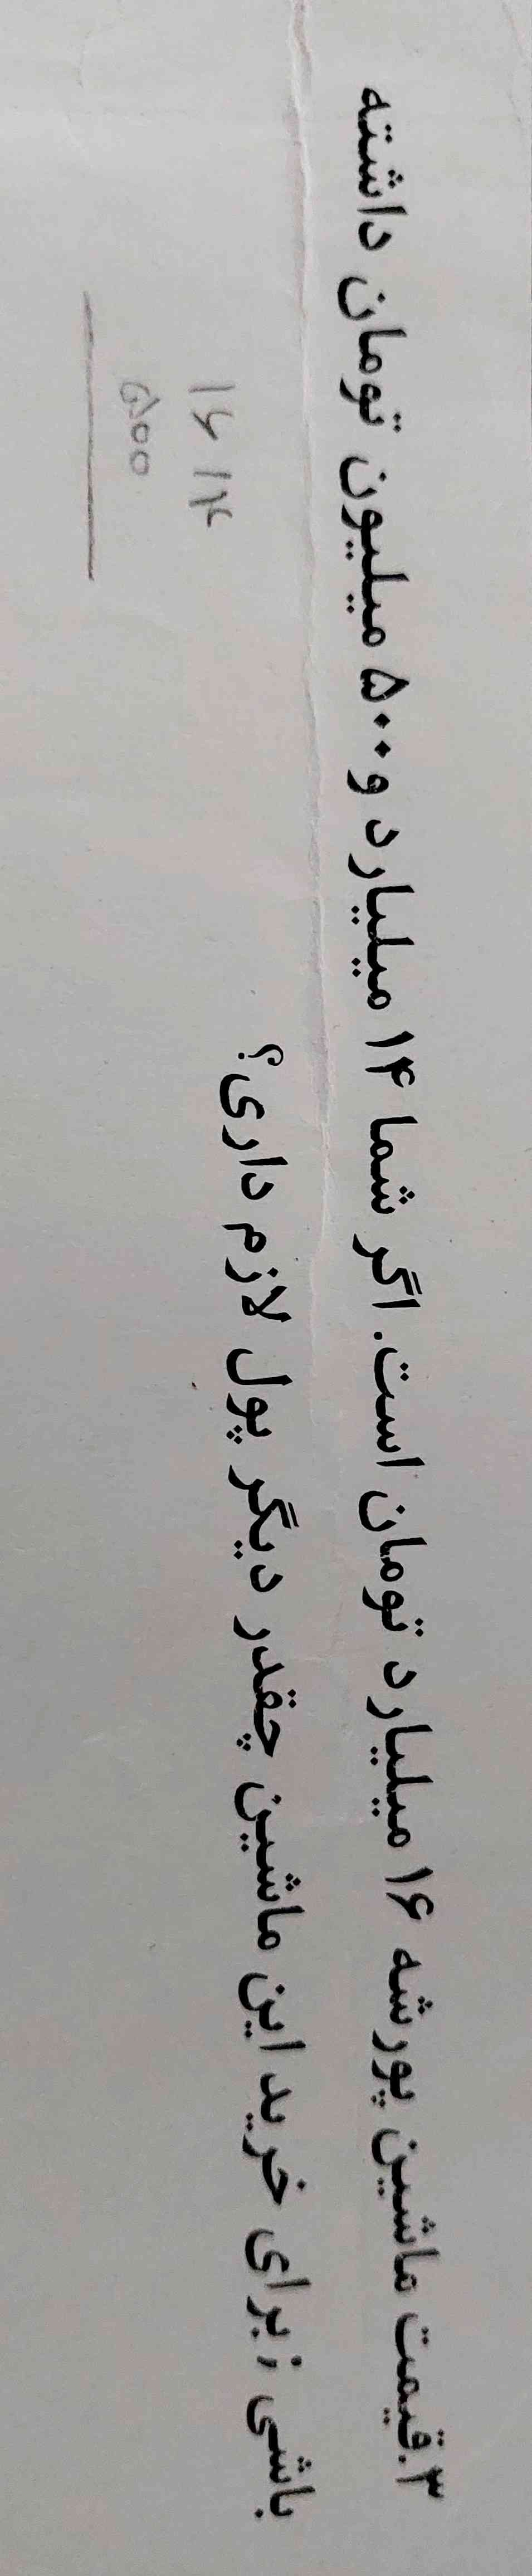 ۳.قیمت ماشین پورشه ۱۶ میلیارد تومان است. اگر شما ۱۴ میلیارد و ۵۰۰ میلیون تومان داشته
باشی ; برای خرید این ماشین چقدر دیگر پول لازم داری؟
۱۶ ۱۴
۵۰۰